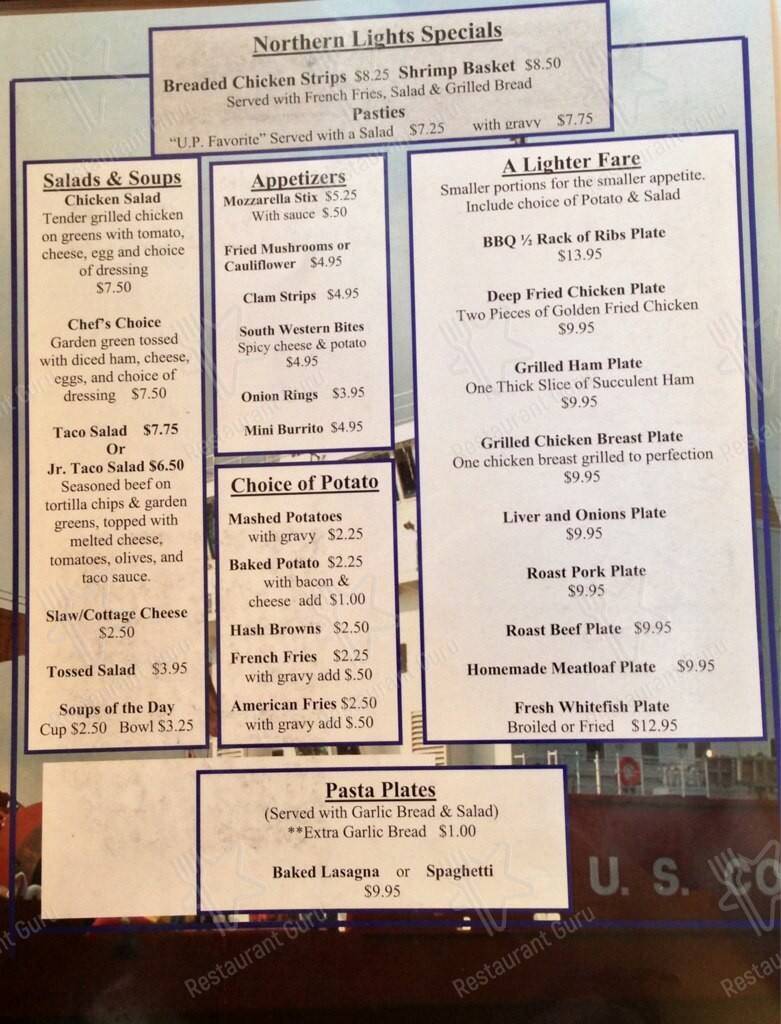 Northern Lights Specials
Breaded Chicken Strips $8.25 Shrimp Basket $8.50
Served with French Fries, Salad & Grilled Bread
Pasties
"U.P. Favorite" Served with a Salad $7.25 with gravy $7.75
Salads & Soups
Chicken Salad
Tender grilled chicken
on greens with tomato,
cheese, egg and choice
of dressing
$7.50
Chef's Choice
Garden green tossed
with diced ham, cheese,
eggs, and choice of
dressing $7.50
Taco Salad $7.75
Or
Jr. Taco Salad $6.50
Seasoned beef on
tortilla chips & garden
greens, topped with
melted cheese,
tomatoes, olives, and
taco sauce.
Slaw/Cottage Cheese
$2.50
Tossed Salad $3.95
Soups of the Day
Cup $2.50 Bowl $3.25
Appetizers
Mozzarella Stix $5.25
With sauce $.50
Fried Mushrooms or
Cauliflower $4.95
Clam Strips $4.95
South Western Bites
Spicy cheese & potato
$4.95
Onion Rings $3.95
Mini Burrito $4.95
Choice of Potato
Mashed Potatoes
with gravy $2.25
Baked Potato $2.25
with bacon &
cheese add $1.00
Hash Browns $2.50
French Fries $2.25
with gravy add $.50
American Fries $2.50
with gravy add $.50
A Lighter Fare
Smaller portions for the smaller appetite.
Include choice of Potato & Salad
BBQ ½ Rack of Ribs Plate
$13.95
Deep Fried Chicken Plate
Two Pieces of Golden Fried Chicken
$9.95
Grilled Ham Plate
One Thick Slice of Succulent Ham
$9.95
Grilled Chicken Breast Plate
One chicken breast grilled to perfection
$9.95
Liver and Onions Plate
$9.95
Roast Pork Plate
$9.95
Roast Beef Plate $9.95
Homemade Meatloaf Plate $9.95
Fresh Whitefish Plate
Broiled or Fried $12.95
Pasta Plates
(Served with Garlic Bread & Salad)
**Extra Garlic Bread $1.00
Baked Lasagna or Spaghetti
$9.95
U. S. CO
Restaurant Guru
Restaurant Guru